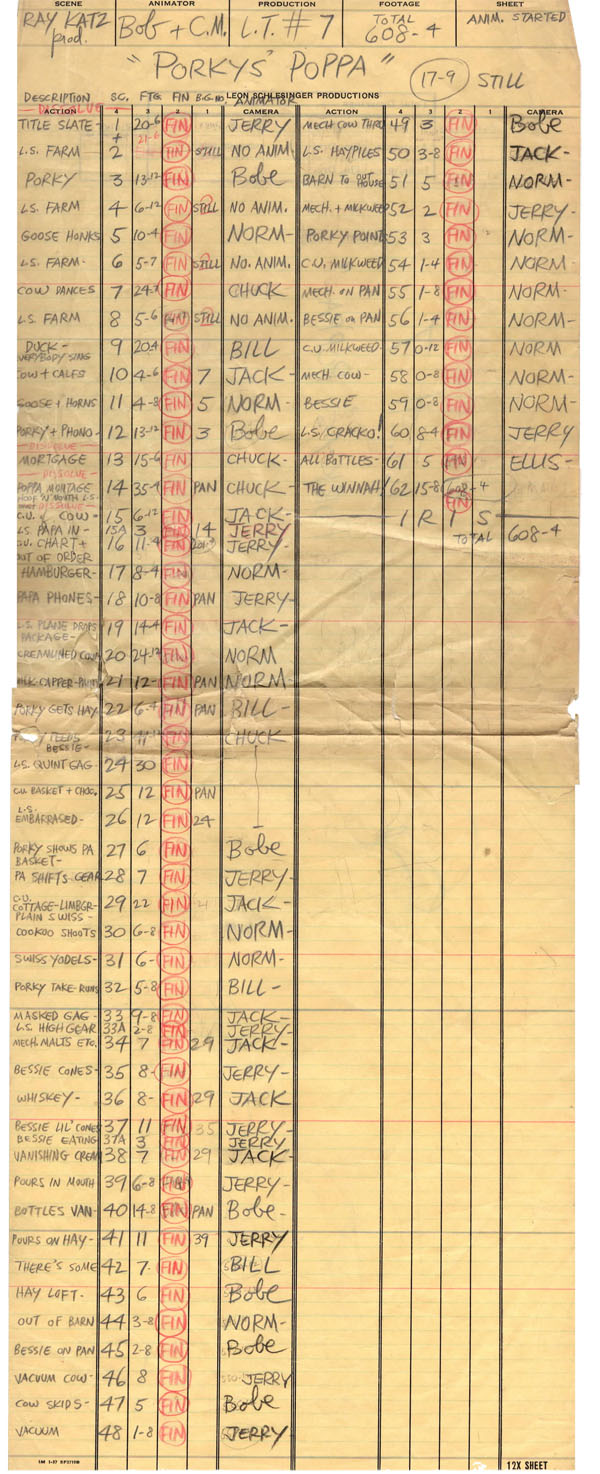 SCENE ANIMATOR PRODUCTION FOOTAGE SHEET
RAY KATZ prod. Bob + C.M. L.T. # 7 TOTAL 608-4 ANIM. STARTED
"PORKYS' POPPA" 17-9 STILL
LEON SCHLESINGER PRODUCTIONS
DESCRIPTION SC. FTG. FIN B.G. NO. ANIMATOR
ACTION 4 3 2 1 CAMERA ACTION 4 3 2 1 CAMERA
DISSOLVE
TITLE SLATE - 1 20-6 FIN JERRY
+
L.S. FARM - 2 FIN STILL NO ANIM.
PORKY 3 13-12 FIN Bobe
L.S. FARM 4 6-12 FIN STILL NO ANIM.
GOOSE HONKS 5 10-4 FIN NORM-
L.S. FARM- 6 5-7 FIN STILL NO. ANIM.
COW DANCES 7 FIN CHUCK
L.S. FARM 8 5-6 FIN STILL NO ANIM.
DUCK - 9 20-4 FIN BILL
COW + CALFS 10 4-6 FIN 7 JACK-
GOOSE + HORNS 11 4-8 FIN 5 NORM-
PORKY + PHONO- 12 13-12 FIN 3 Bobe
DISSOLVE
MORTGAGE 13 15-6 FIN CHUCK-
DISSOLVE
POPPA MONTAGE 14 FIN PAN CHUCK-
DISSOLVE
C.U. COW- 15 6-12 FIN JACK-
L.S. PAPA IN - 15A 3 FIN 14 JERRY
C.U. CHART + OUT OF ORDER 16 11-4 FIN JERRY-
HAMBURGER- 17 8-4 FIN NORM-
PAPA PHONES- 18 10-8 FIN PAN JERRY-
L.S. PLANE DROPS PACKAGE- 19 14-4 FIN JACK-
CREAMLINED COW 20 24-12 FIN NORM
21 12- FIN PAN NORM-
PORKY GETS HAY 22 6-4 FIN PAN BILL-
PORKY FEEDS BESSIE- 23 FIN CHUCK
L.S. QUINT GAG- 24 30 FIN
C.U. BASKET + CHOC. 25 12 FIN PAN
L.S. EMBARRASED- 26 12 FIN 24
PORKY SHOWS PA BASKET- 27 6 FIN Bobe
PA SHIFTS GEAR 28 7 FIN JERRY-
C.U. COTTAGE-LIMBGR- PLAIN SWISS - 29 22 FIN JACK-
COOKOO SHOOTS 30 6-8 FIN NORM-
SWISS YODELS- 31 6- FIN NORM-
PORKY TAKE-RUNS 32 5-8 FIN BILL-
MASKED GAG - 33 9-8 FIN JACK-
L.S. HIGH GEAR 33A 2-8 FIN JERRY-
MECH. MALTS ETC. 34 7 FIN 29 JACK-
BESSIE CONES- 35 8- FIN JERRY-
WHISKEY- 36 8- FIN 29 JACK
BESSIE LIL' CONES 37 11 FIN 35 JERRY-
BESSIE EATING 37A 3 FIN JERRY
VANISHING CREAM 38 7 FIN 29 JACK-
POURS IN MOUTH 39 6-8 FIN JERRY-
BOTTLES VAN- 40 14-8 FIN PAN Bobe-
POURS ON HAY- 41 11 FIN 39 JERRY
THERE'S SOME 42 7- FIN BILL
HAY LOFT- 43 6 FIN Bobe
OUT OF BARN 44 3-8 FIN NORM-
BESSIE ON PAN 45 2-8 FIN Bobe
VACUUM COW- 46 8 FIN JERRY
COW SKIDS- 47 5 FIN Bobe
VACUUM 48 1-8 FIN JERRY-
MECH COW THRU 49 3 FIN Bobe
L.S. HAYPILES 50 3-8 FIN JACK-
BARN TO OUT HOUSE 51 5 FIN NORM-
MECH. + MILKWEED 52 2 FIN JERRY-
PORKY POINTS 53 3 FIN NORM-
C.U. MILKWEED 54 1-4 FIN NORM-
MECH. ON PAN 55 1-8 FIN NORM-
BESSIE ON PAN 56 1-4 FIN NORM-
C.U. MILKWEED- 57 0-12 FIN NORM
MECH COW- 58 0-8 FIN NORM-
BESSIE 59 0-8 FIN NORM-
L.S. CRACKO! 60 8-4 FIN JERRY
ALL BOTTLES- 61 5 FIN ELLIS-
THE WINNAH! 62 15-8 608-4 FIN
I R I S
TOTAL 608-4
12X SHEET